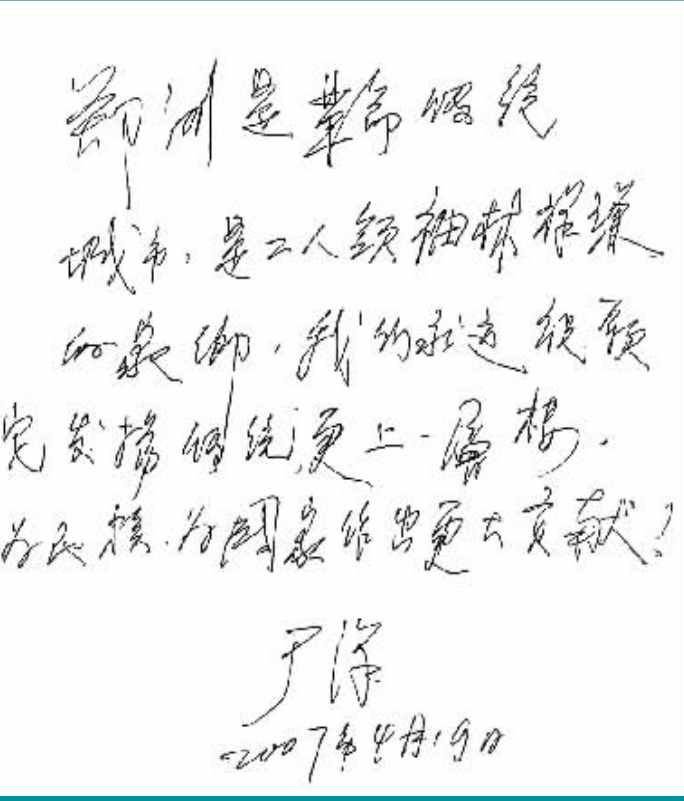 郑州是革命传统
城市，是工人领袖林祥谦
的家乡，我们永远祝愿
它发扬传统更上一层楼。
为民族、为国家作出更大贡献！
于洋
2007年4月19日